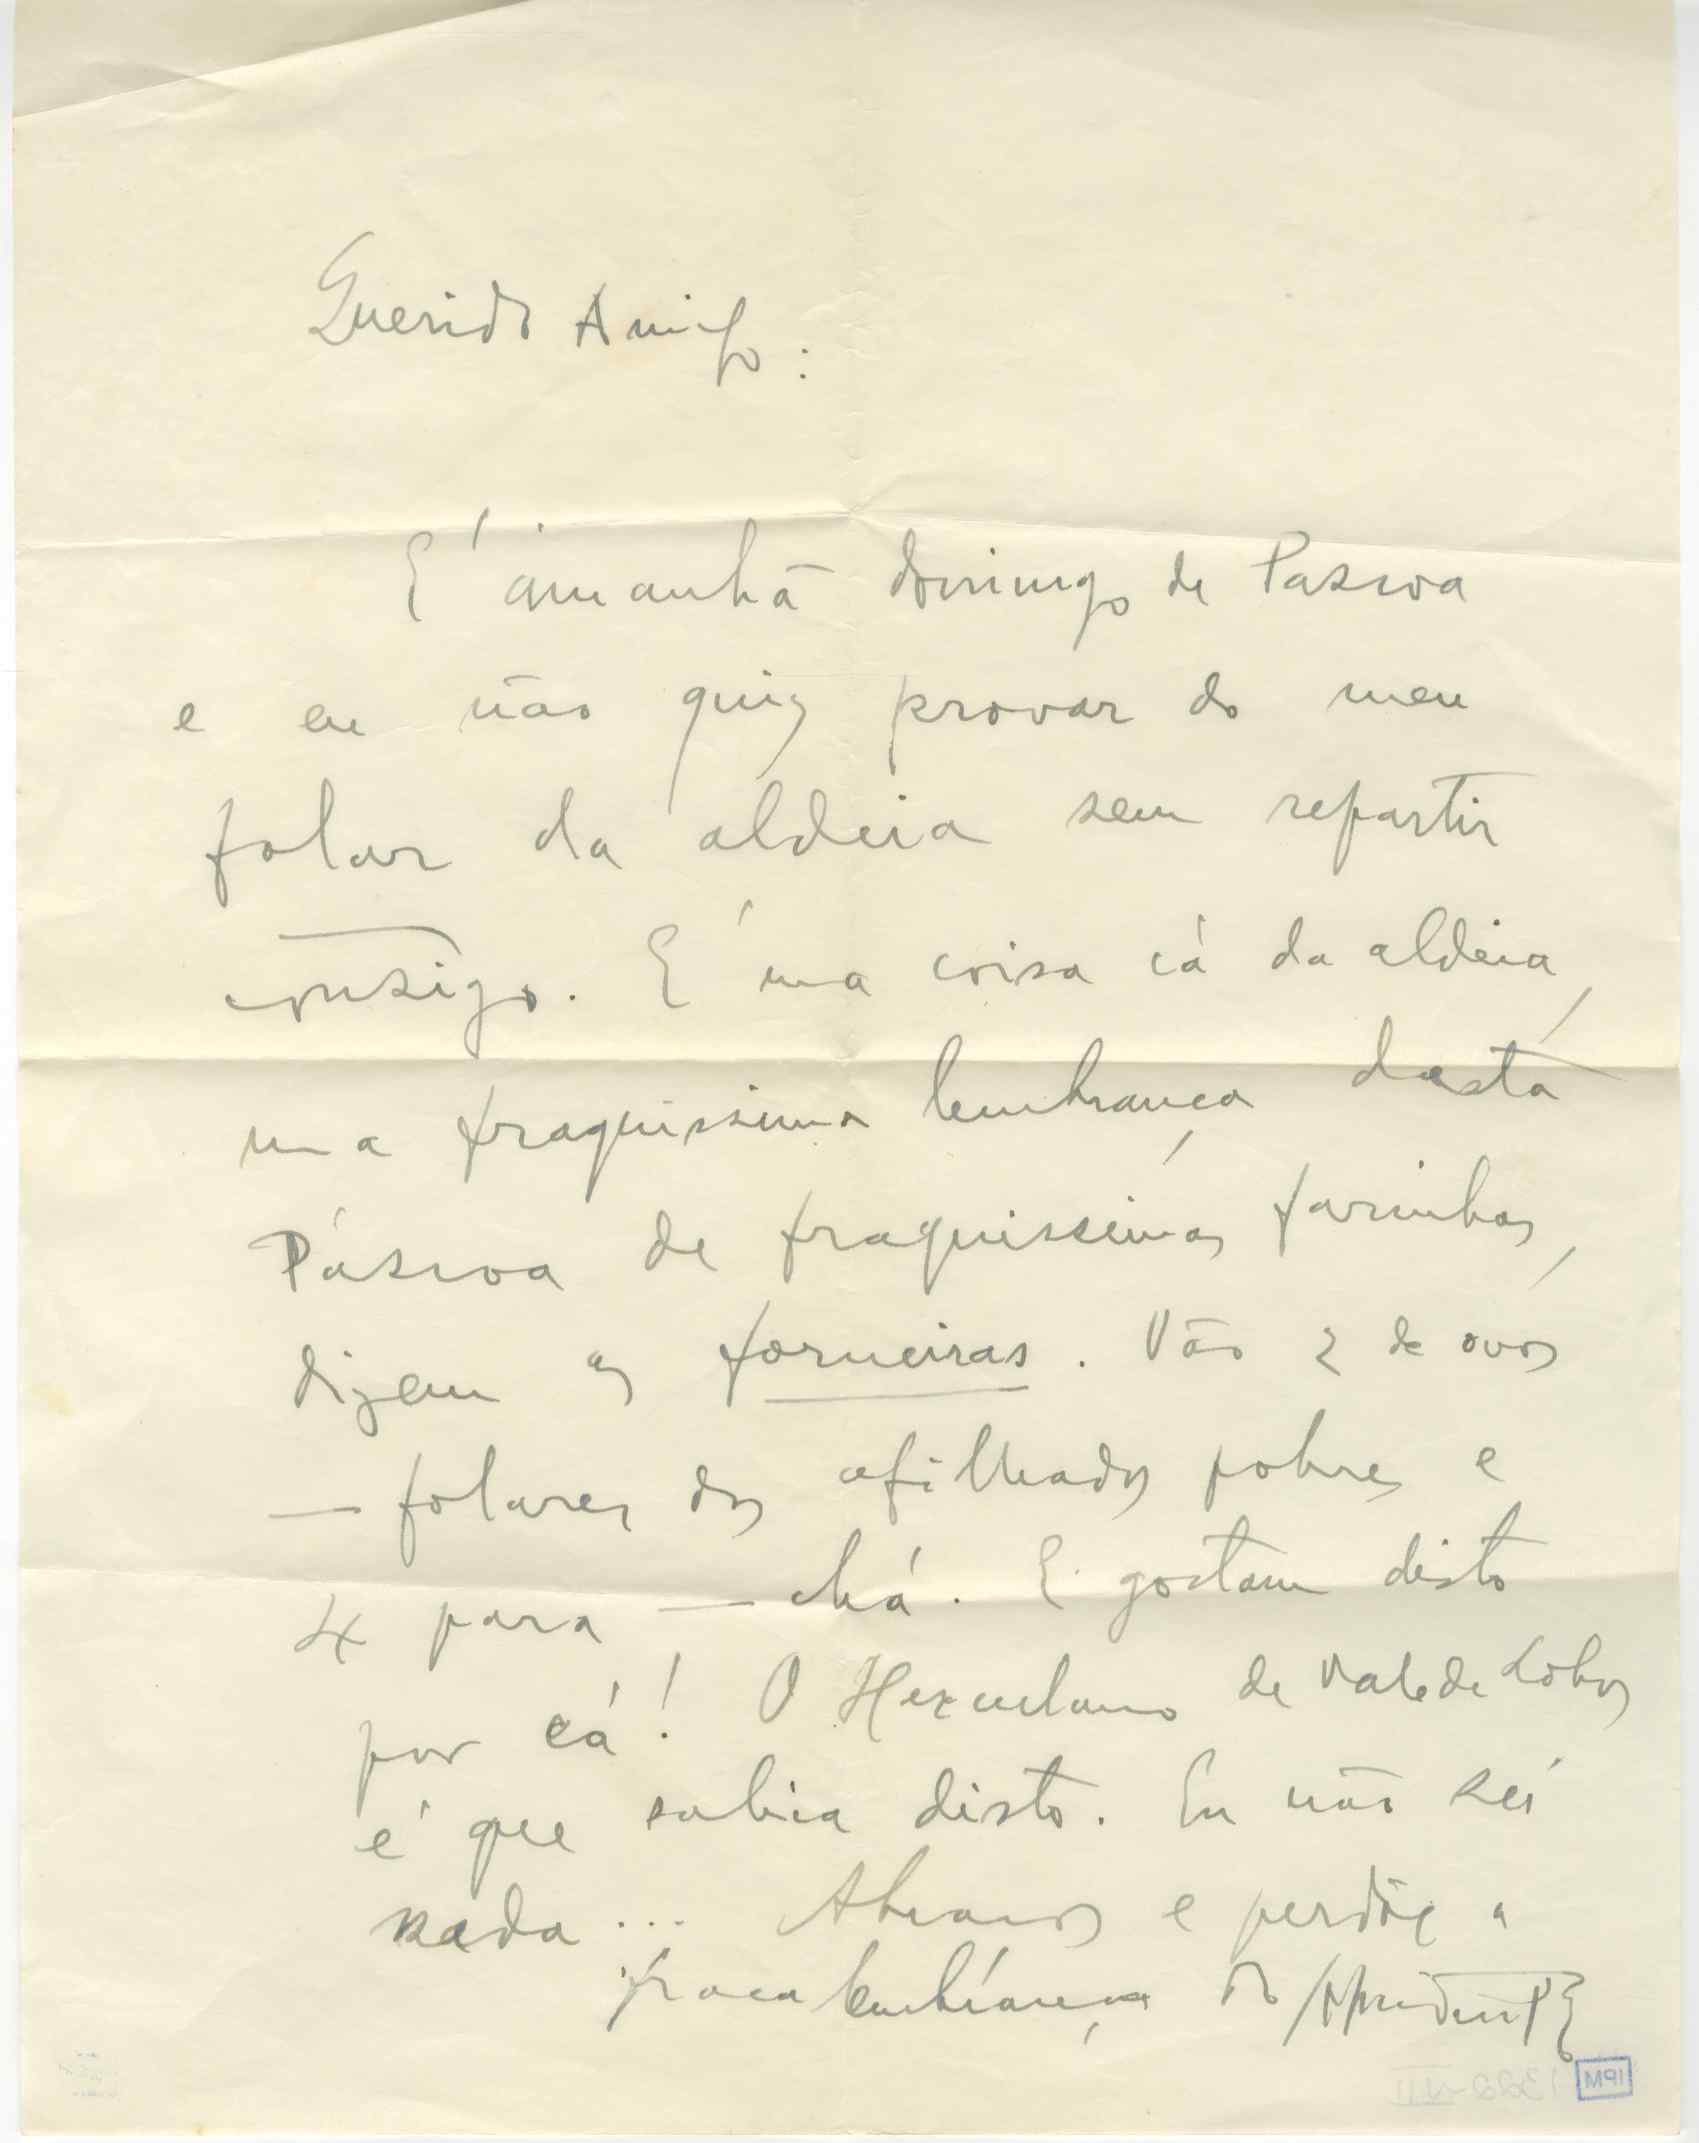 Querido Amigo:
E' àmanhã domingo de Pascoa
e eu não quiz provar do meu
folar da aldeia sem repartir
consigo. E' uma coisa cá da aldeia,
uma fraquissima lembrança desta
Páscoa de fraquissimas farinhas,
dizem as forneiras. Vão 2 de ovos
— folares dos afilhados pobres e
4 para — chá. E gostam disto
por cá! O Herculano de Vale de Lobos
é que sabia disto. Eu não sei
nada... Abraços e perdõe a
fraca lembrança do
IPM